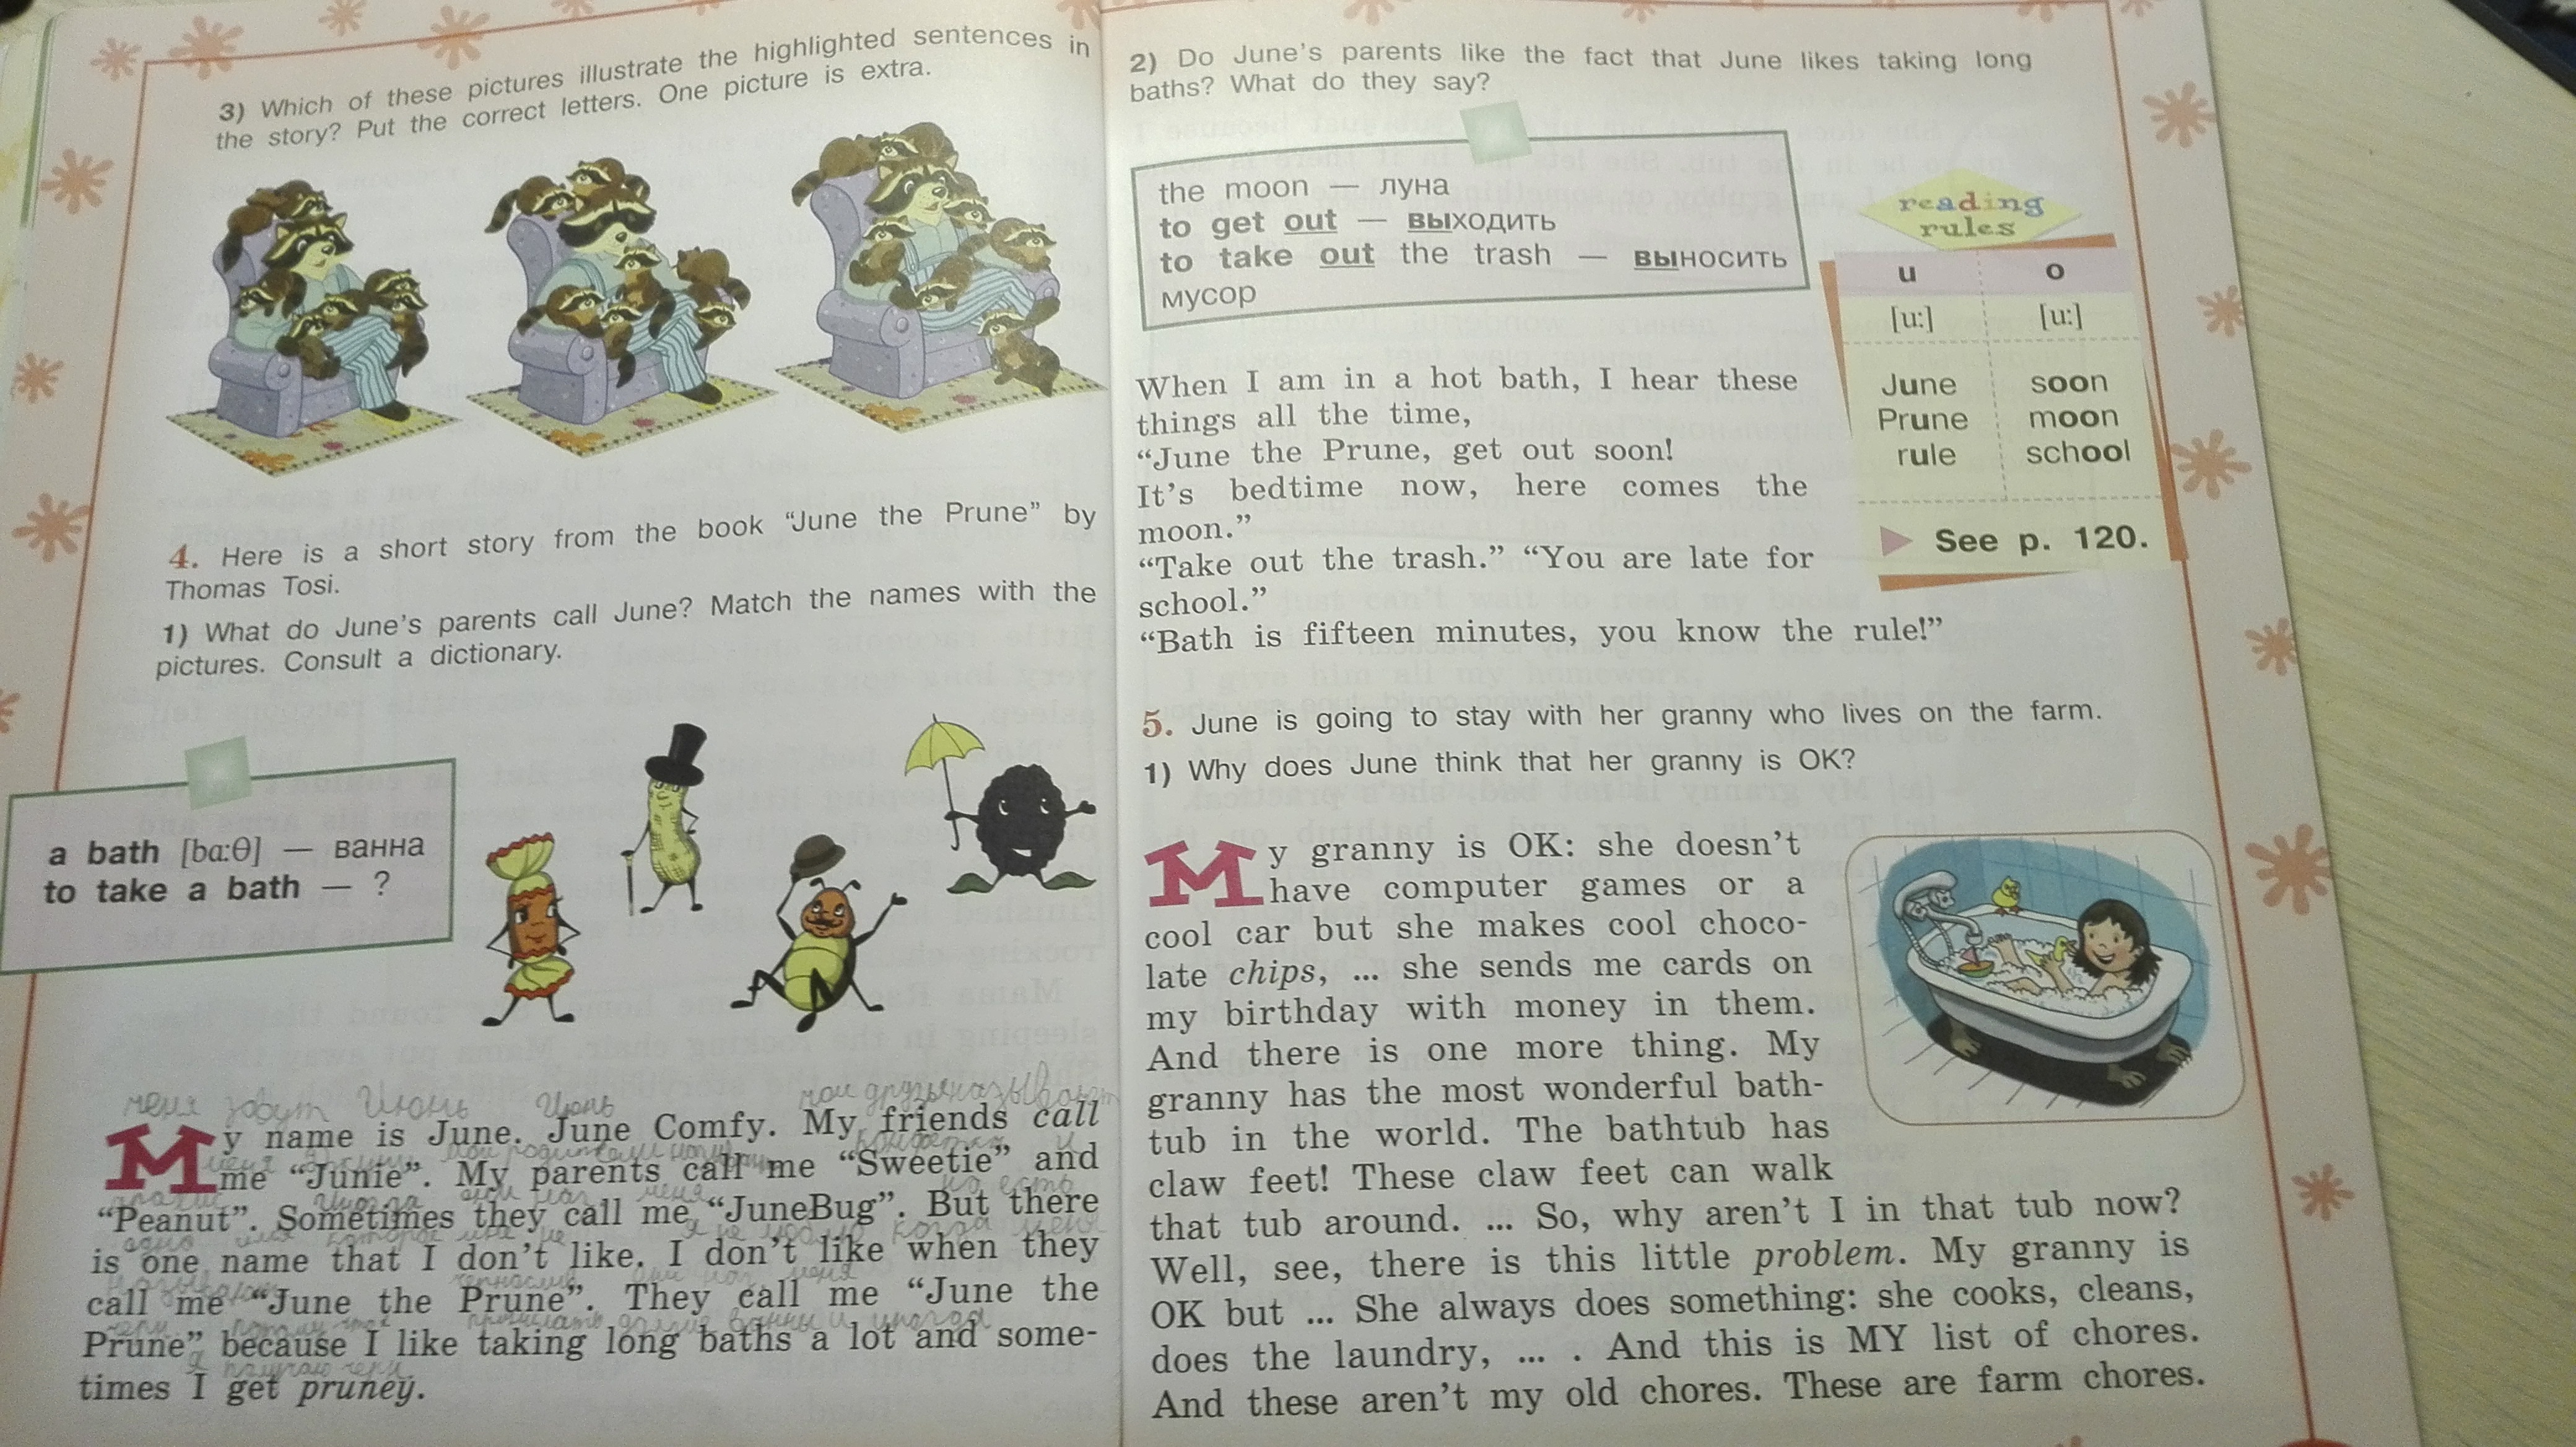 3) Which of these pictures illustrate the highlighted sentences in
the story? Put the correct letters. One picture is extra.
4. Here is a short story from the book “June the Prune” by
Thomas Tosi.
1) What do June’s parents call June? Match the names with the
pictures. Consult a dictionary.
a bath [bɑ:θ] — ванна
to take a bath — ?
меня зовут Июнь Июнь мои друзья называют
My name is June. June Comfy. My friends call
me “Junie”. My parents call me “Sweetie” and
“Peanut”. Sometimes they call me “JuneBug”. But there
is one name that I don’t like. I don’t like when they
call me “June the Prune”. They call me “June the
Prune” because I like taking long baths a lot and some-
times I get pruney.
2) Do June’s parents like the fact that June likes taking long
baths? What do they say?
the moon — луна
to get out — выходить
to take out the trash — выносить
мусор
reading
rules
u o
[u:] [u:]
June soon
Prune moon
rule school
See p. 120.
When I am in a hot bath, I hear these
things all the time,
“June the Prune, get out soon!
It’s bedtime now, here comes the
moon.”
“Take out the trash.” “You are late for
school.”
“Bath is fifteen minutes, you know the rule!”
5. June is going to stay with her granny who lives on the farm.
1) Why does June think that her granny is OK?
My granny is OK: she doesn’t
have computer games or a
cool car but she makes cool choco-
late chips, ... she sends me cards on
my birthday with money in them.
And there is one more thing. My
granny has the most wonderful bath-
tub in the world. The bathtub has
claw feet! These claw feet can walk
that tub around. ... So, why aren’t I in that tub now?
Well, see, there is this little problem. My granny is
OK but ... She always does something: she cooks, cleans,
does the laundry, ... . And this is MY list of chores.
And these aren’t my old chores. These are farm chores.